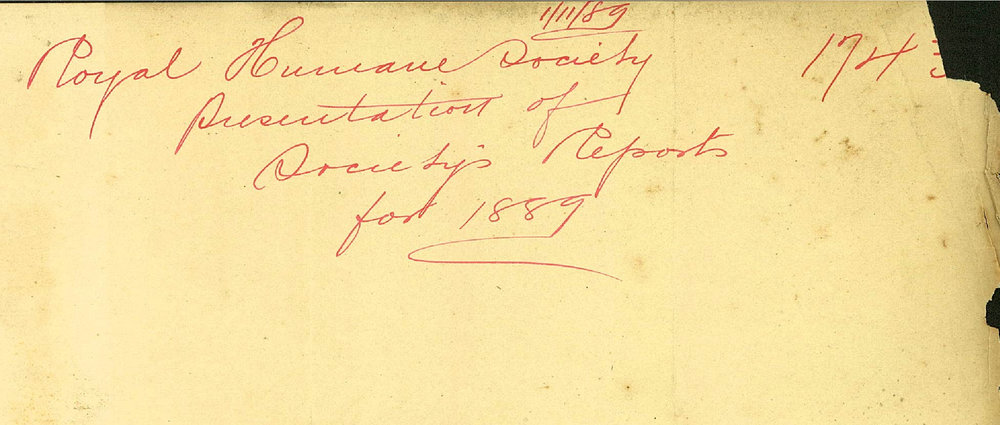 1/11/89
Royal Humane Society 174
Presentation of
Society's Reports
for 1889